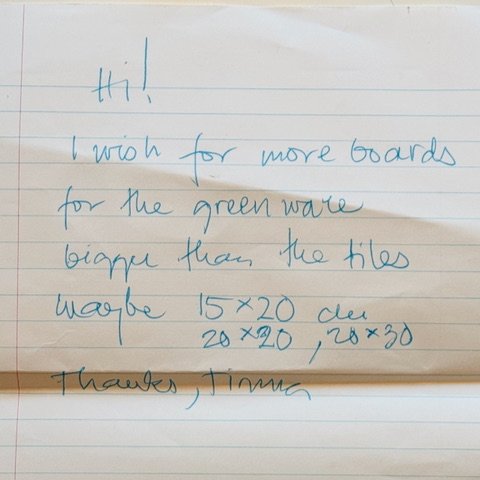 Hi!
I wish for more boards
for the greenware
bigger than the tiles
maybe 15×20 cm
20×20, 20×30
Thanks,